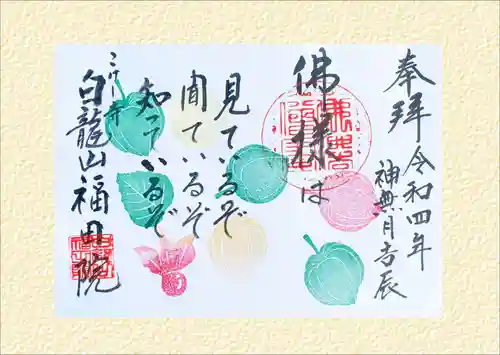 奉拝
令和四年
神無月吉辰
佛様は
見ているぞ
聞ているぞ
知っているぞ
こけし寺
白龍山福田院